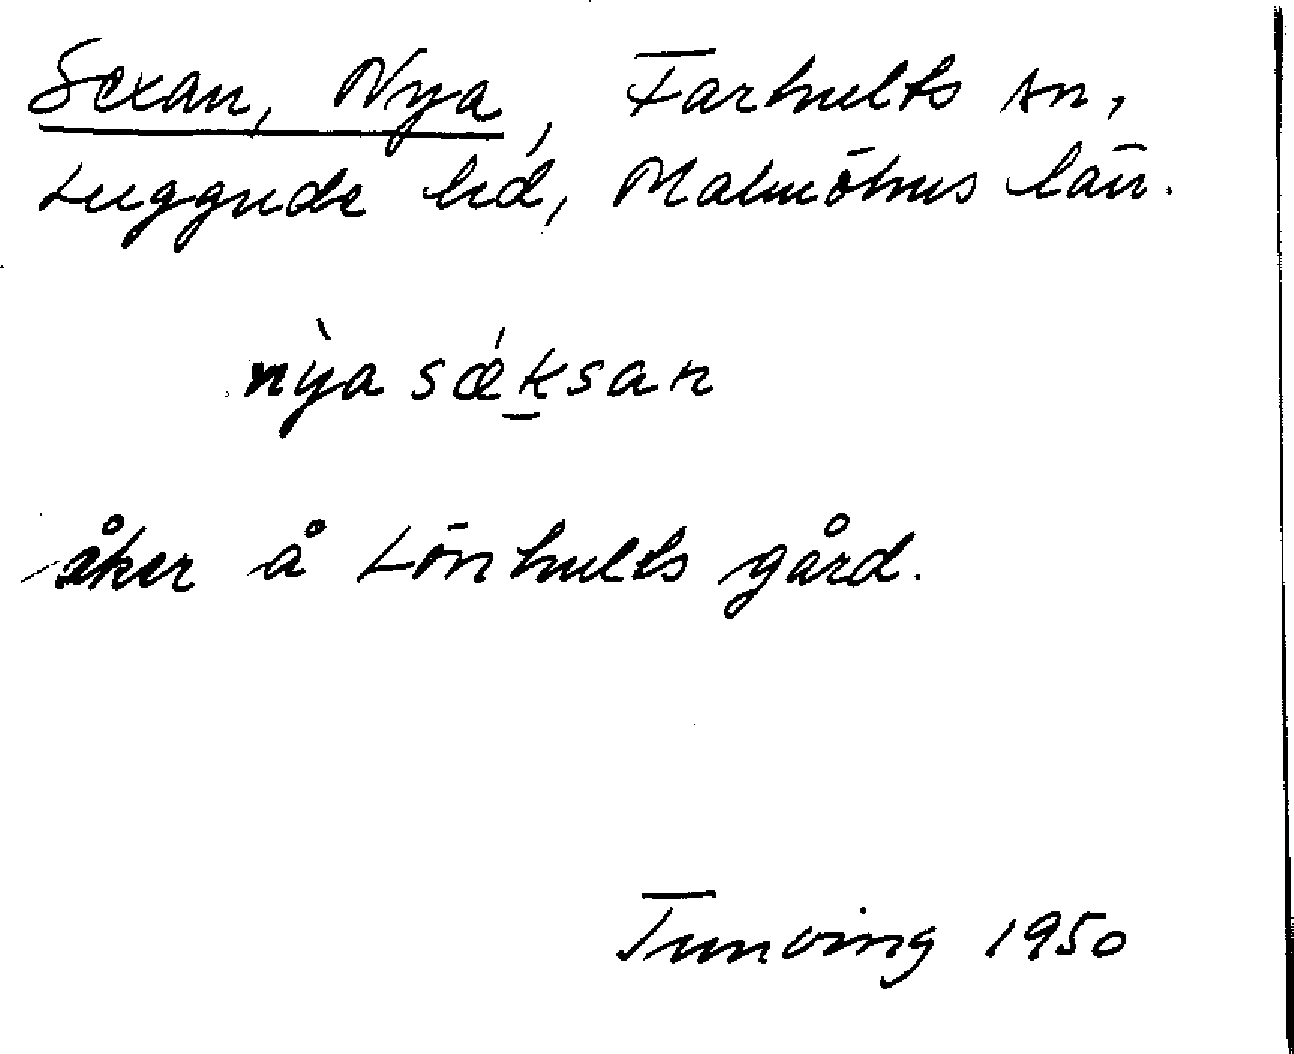 Sexan, Nya, Farhults sn,
Luggude hd, Malmöhus län.
nỳa sǽk̲san
åker å Lönhults gård.
Tunving 1950